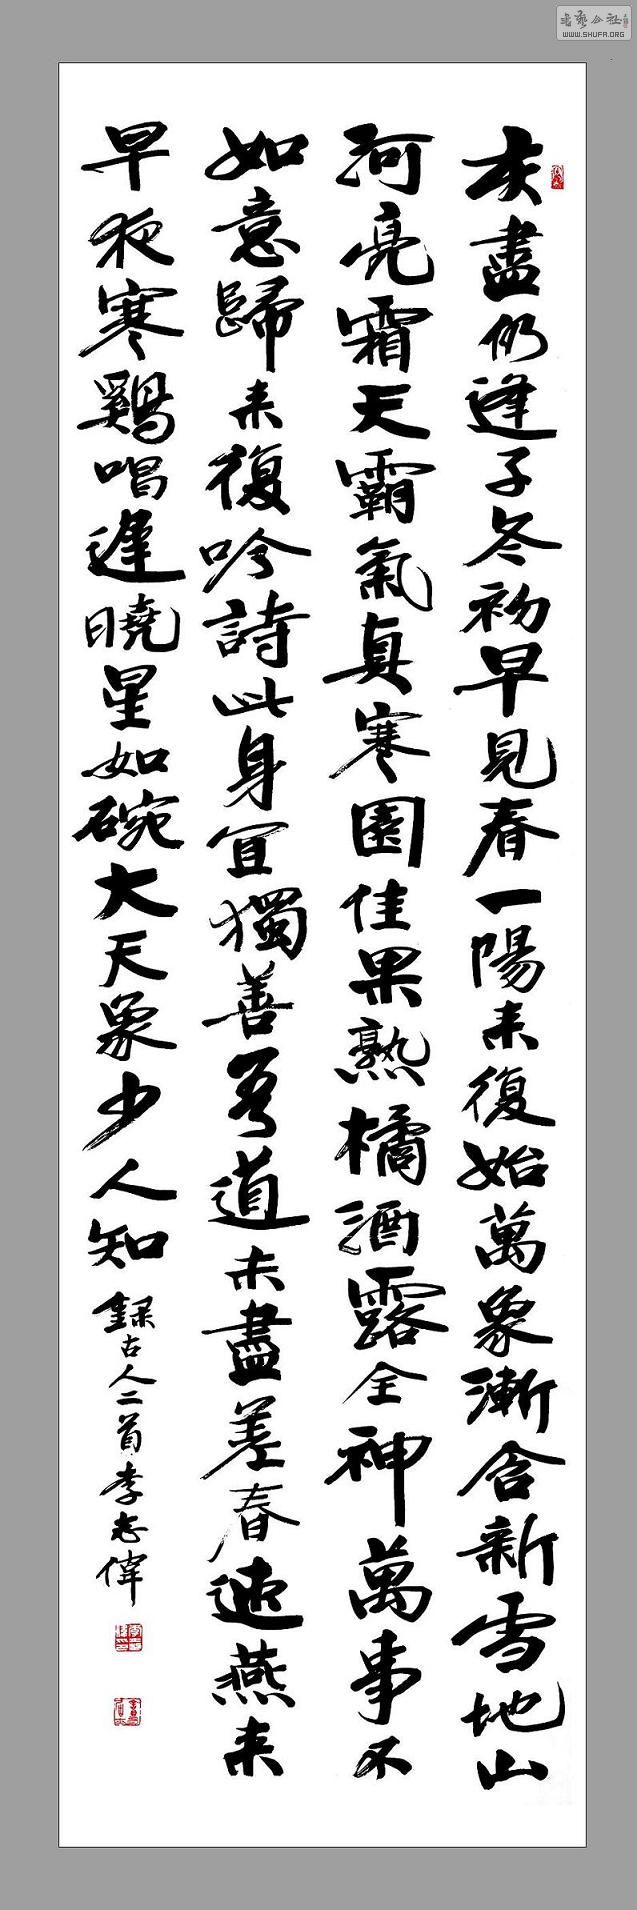 灰盡仍逢子冬初早見春一陽来復始萬象漸含新雪地山
河亮霜天霸氣真寒園佳果熟橘酒露全神萬事不
如意歸来復吟詩此身宜獨善吾道未盡差春遲燕来
早夜寒鷄唱遲曉星如碗大天象少人知
錄古人二首李志偉
WWW.SHUFA.ORG